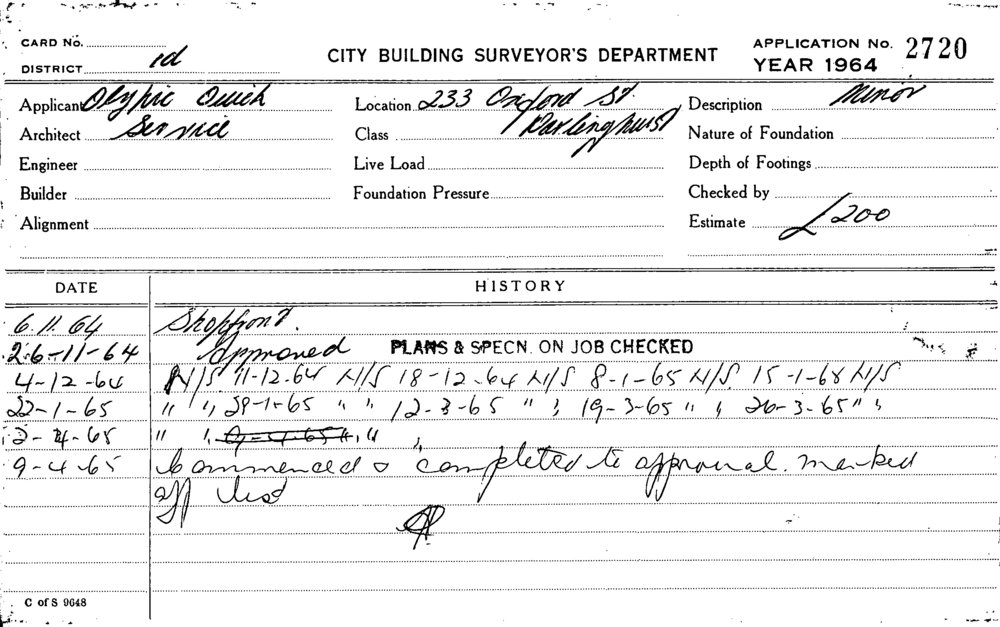 CARD No.
DISTRICT 1d
CITY BUILDING SURVEYOR'S DEPARTMENT
APPLICATION No. 2720
YEAR 1964
Applicant Olypic Quick
Architect Service
Engineer
Builder
Alignment
Location 233 Oxford St.
Class Darlinghurst
Live Load
Foundation Pressure
Description Minor
Nature of Foundation
Depth of Footings
Checked by
Estimate £200
DATE HISTORY
6.11.64 Shopfront.
26-11-64 Approved PLANS & SPECN. ON JOB CHECKED
4-12-64 N/S 11-12-64 N/S 18-12-64 N/S 8-1-65 N/S 15-1-65 N/S
22-1-65 " " 29-1-65 " " 12-3-65 " " 19-3-65 " " 26-3-65 " "
2-4-65 " " 9-4-65 " " "
9-4-65 Commenced & completed to approval. marked
off list
C of S 9648